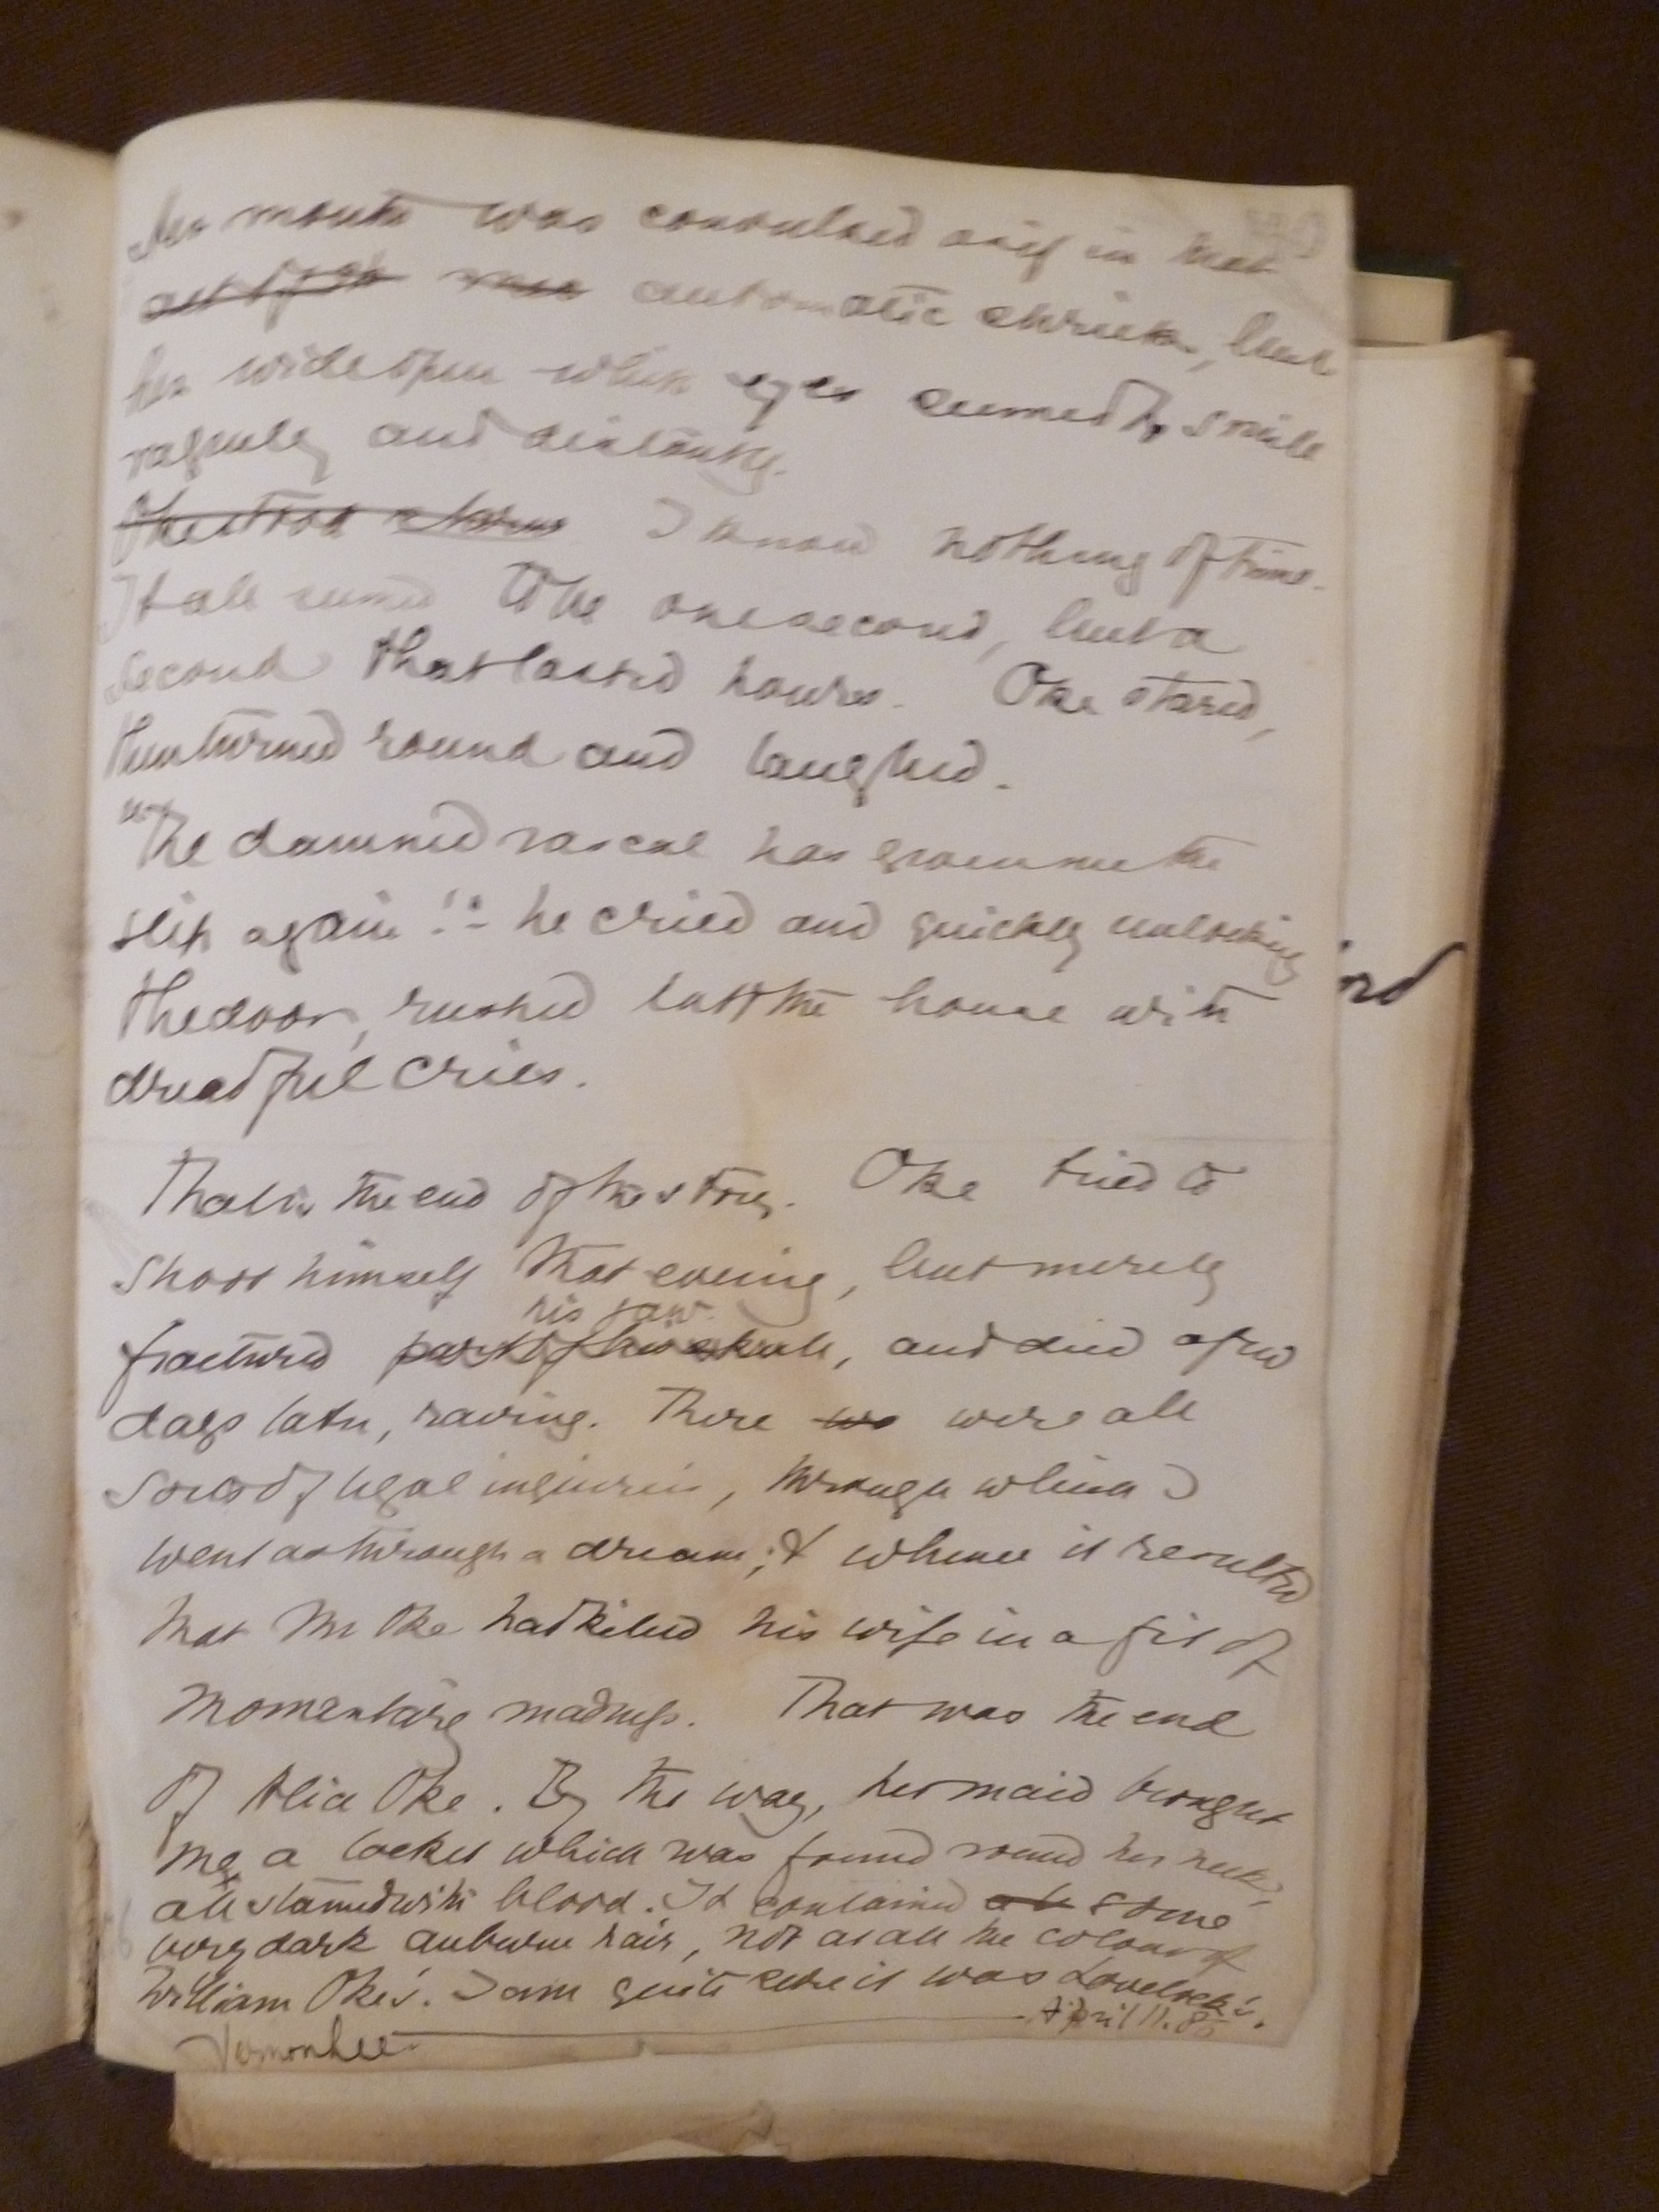 Her mouth was convulsed as if in that
automatic shriek, but
her wide open white eyes seemed to smile
vaguely and distantly.
I know nothing of time.
It all seemed to be one second, but a
second that lasted hours. Oke stared,
then turned round and laughed.
"The damned rascal has given me the
slip again!" he cried and quickly unlocking
the door, rushed out of the house with
dreadful cries.
That is the end of the story. Oke tried to
shoot himself that evening, but merely
his jaw
fractured part of his skull, and died a few
days later, raving. There wa were all
sorts of legal inquiries, through which I
went as through a dream; & whence it resulted
that Mr Oke had killed his wife in a fit of
momentary madness. That was the end
of Alice Oke. By the way, her maid brought
me a locket which was found round her neck,
all stained with blood. It contained some
very dark auburn hair, not at all the colour of
William Oke's. I am quite sure it was Lovelock's.
April 11. 85
Vernon Lee